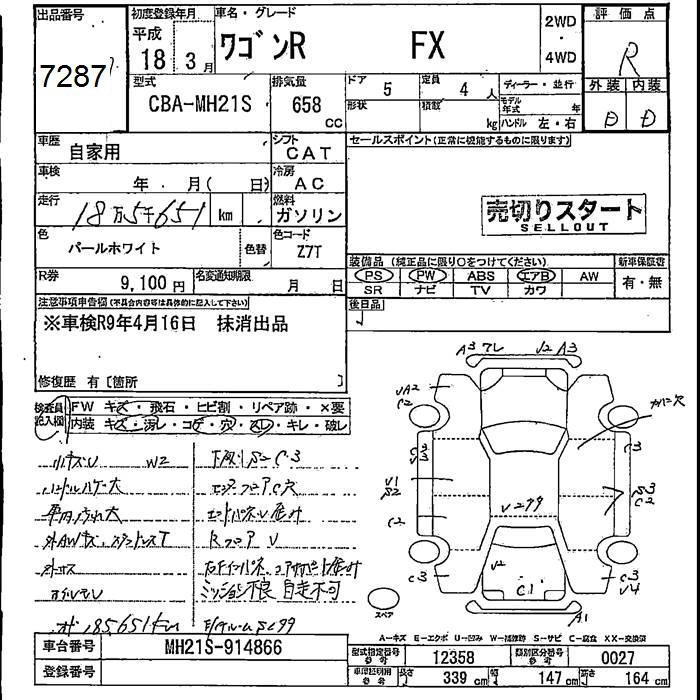 出品番号
7287
初度登録年月
平成
18 3月
車名・グレード
ワゴンR FX
2WD
・
4WD
評価点
R
外装 内装
D D
型式
CBA-MH21S
排気量
658
CC
ドア
5
定員
4 人
形状
積載
kg
ディーラー・並行
モデル年式 年
ハンドル 左・右
車歴
自家用
シフト
CAT
セールスポイント(正常に機能するものに限ります)
車検
年 月( 日)
冷房
AC
走行
18万5千651 km
燃料
ガソリン
売切りスタート
SELLOUT
色
パールホワイト
色替
色コード
Z7T
装備品 (純正品に限り○をつけてください)
新車保証書
PS PW ABS エアB AW
有・無
SR ナビ TV カワ
R券
9,100円
名変通知期限
月 日
後日品
注意事項申告欄(不具合内容等は具体的に記入して下さい)
※車検R9年4月16日 抹消出品
修復歴 有〔箇所 〕
検査員記入欄
FW キズ・飛石・ヒビ割・リペア跡・×要
内装 キズ・汚レ・コゲ・穴・スレ・キレ・破レ
W2
下廻りS2 C3
ハンドルハゲ大
エンドパネルV
RフロアV
ミッション不良 自走不可
185651km
A3 フレ V2 A3
VA2
C2
C3
V3
V1
S2
C2
C3
V299
V2
C1
A1
C3
S3
C2
C3
V4
スペア
A-キズ E-エクボ U-凹み W-補修跡 S-サビ C-腐食 XX-交換済
車台番号
MH21S-914866
登録番号
型式指定番号
参考
12358
類別区分番号
参考
0027
車庫証明用
参考
長さ
339 cm
幅
147 cm
高さ
164 cm